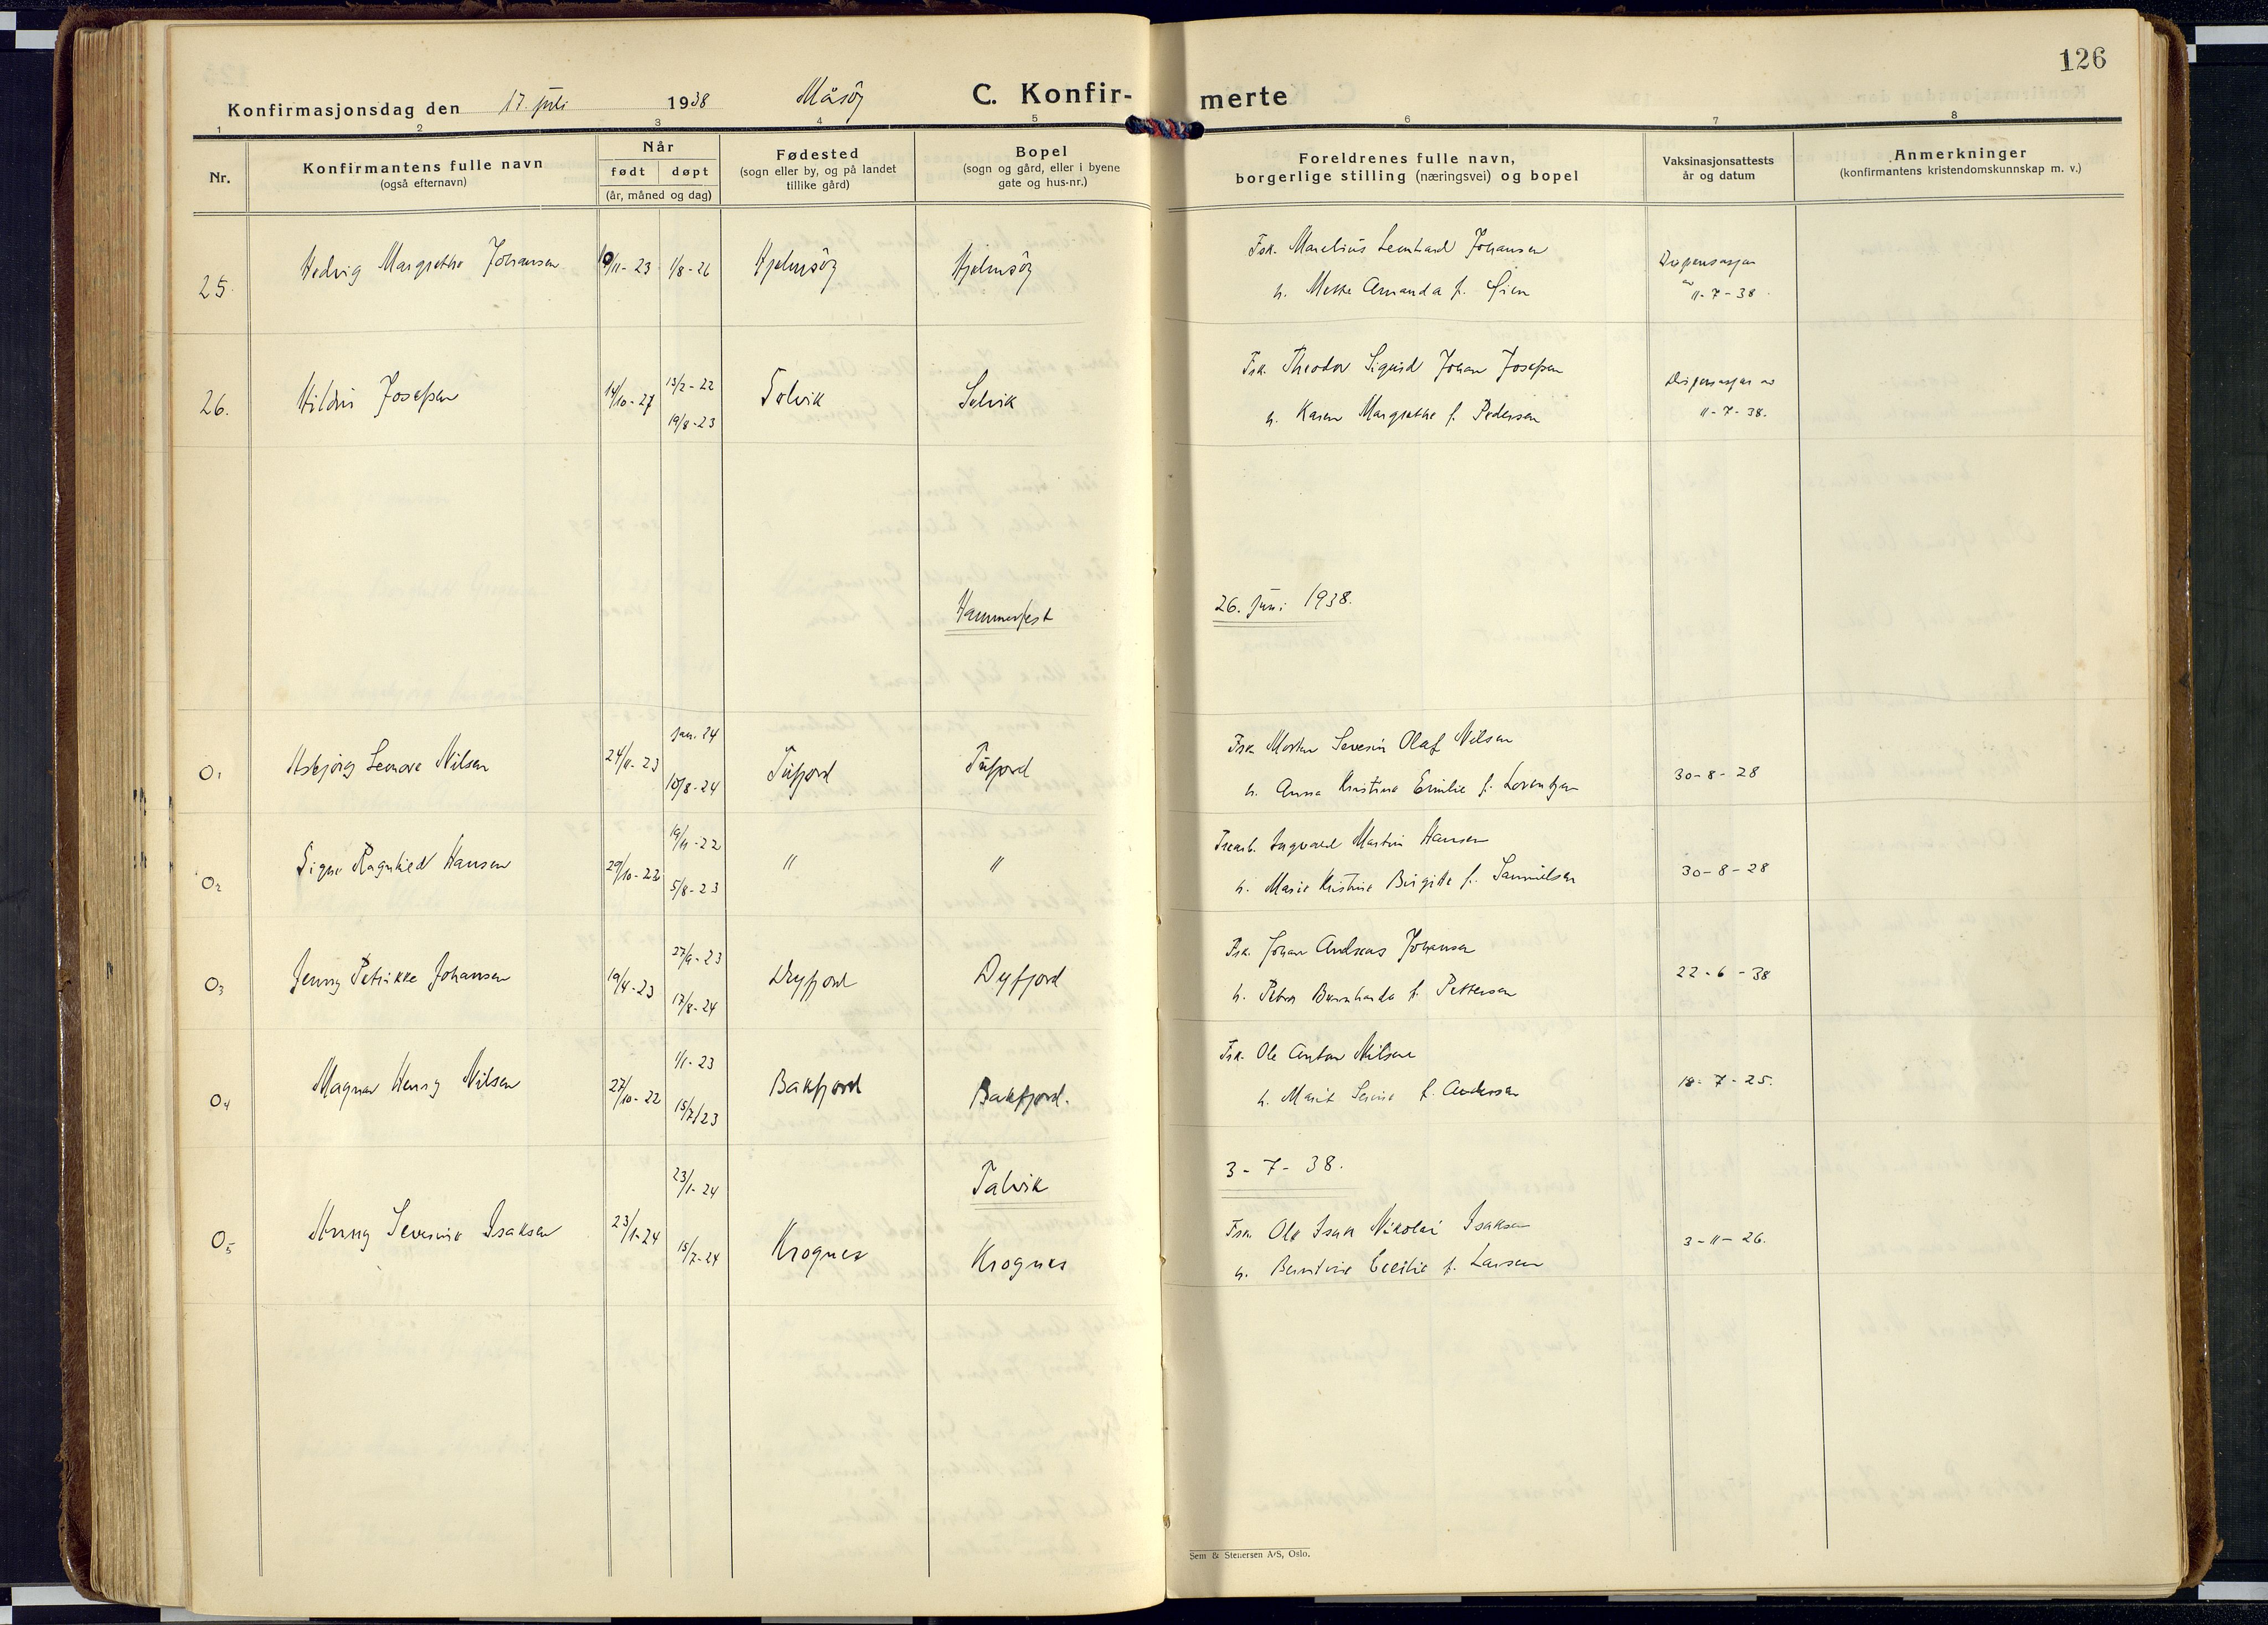 126
Konfirmasjonsdag den 17. juli 1938 Måsöy C. Konfirmerte
1 2 3 4 5 6 7 8
Nr.
Konfirmantens fulle navn
(også efternavn)
Når
født døpt
(år, måned og dag)
Fødested
(sogn eller by, og på landet
tillike gård)
Bopel
(sogn og gård, eller i byene
gate og hus-nr.)
Foreldrenes fulle navn,
borgerlige stilling (næringsvei) og bopel
Vaksinasjonsattests
år og datum
Anmerkninger
(konfirmantens kristendomskunnskap m. v.)
25. Hedvig Margrethe Johansen 10/11-23 1/8-26 Hjelmsöy Hjelmsöy
Fsk. Marelius Leonhard Johansen
h. Mette Amanda f. Gien
Dispensasjon
av 11-7-38.
26. Hildur Josefsen 14/10-27 13/2-22 Solvik Selvik
19/8-23
Fsk. Theodor Sigurd Johan Josefsen
h. Karen Margrethe f. Pedersen
Dispensasjon av
11-7-38.
Hammerfest 26. juni 1938.
O1 Asbjörg Lenore Nilsen 24/11-23 Jan. 24 Tufjord Tufjord
10/8-24
Fsk. Morten Severin Olaf Nilsen
h. Anna Kristine Emilie f. Lorentzen
30-8-28
O2 Signe Ragnhild Hansen 29/10-22 19/11-22 " "
5/8-23
Ingvald Martin Hansen
h. Marie Kristine Birgitte f. Samuelsen
30-8-28
O3 Jenny Petrikke Johansen 19/4-23 27/9-23 Dyfjord Dyfjord
17/8-24
Fsk. Johan Andreas Johansen
h. Petra Bernharda f. Pettersen
22-6-38
O4 Magnar Henry Nilsen 27/10-22 1/1-23 Bakfjord Bakfjord.
15/7/23
Fsk. Ole Anton Nilsen
h. Marit f. Andersen
18-7-25.
Talvik 3-7-38.
O5 Anny Severine Isaksen 23/1-24 23/1-24 Krognes Krognes
15/7-24
Fsk. Ole Isak Nikolai Isaksen
h. Berntine Cecilie f. Larsen
3-11-26.
Sem & Stenersen A/S, Oslo.